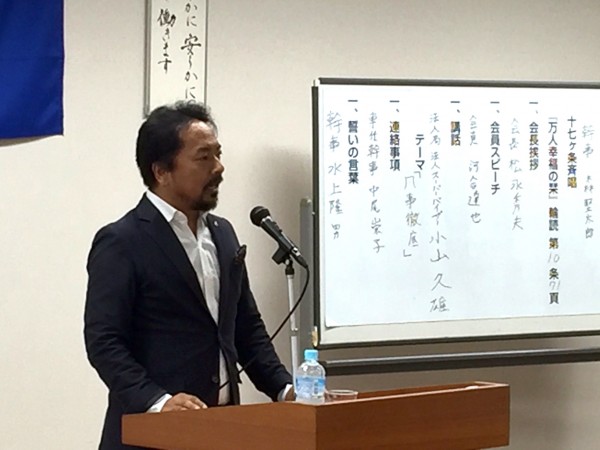 一、十七ヶ条斉唱
幹事
『万人幸福の栞』輪読 第10条71頁
一、会長挨拶
会長 松永秀夫
一、会員スピーチ
会員 河谷達也
一、講話
法人局 法人スーパーバイザー 小山久雄
テーマ「凡事徹底」
一、連絡事項
専任幹事 中尾栄子
一、誓いの言葉
幹事 水上隆男
かに 安らかに
働きます